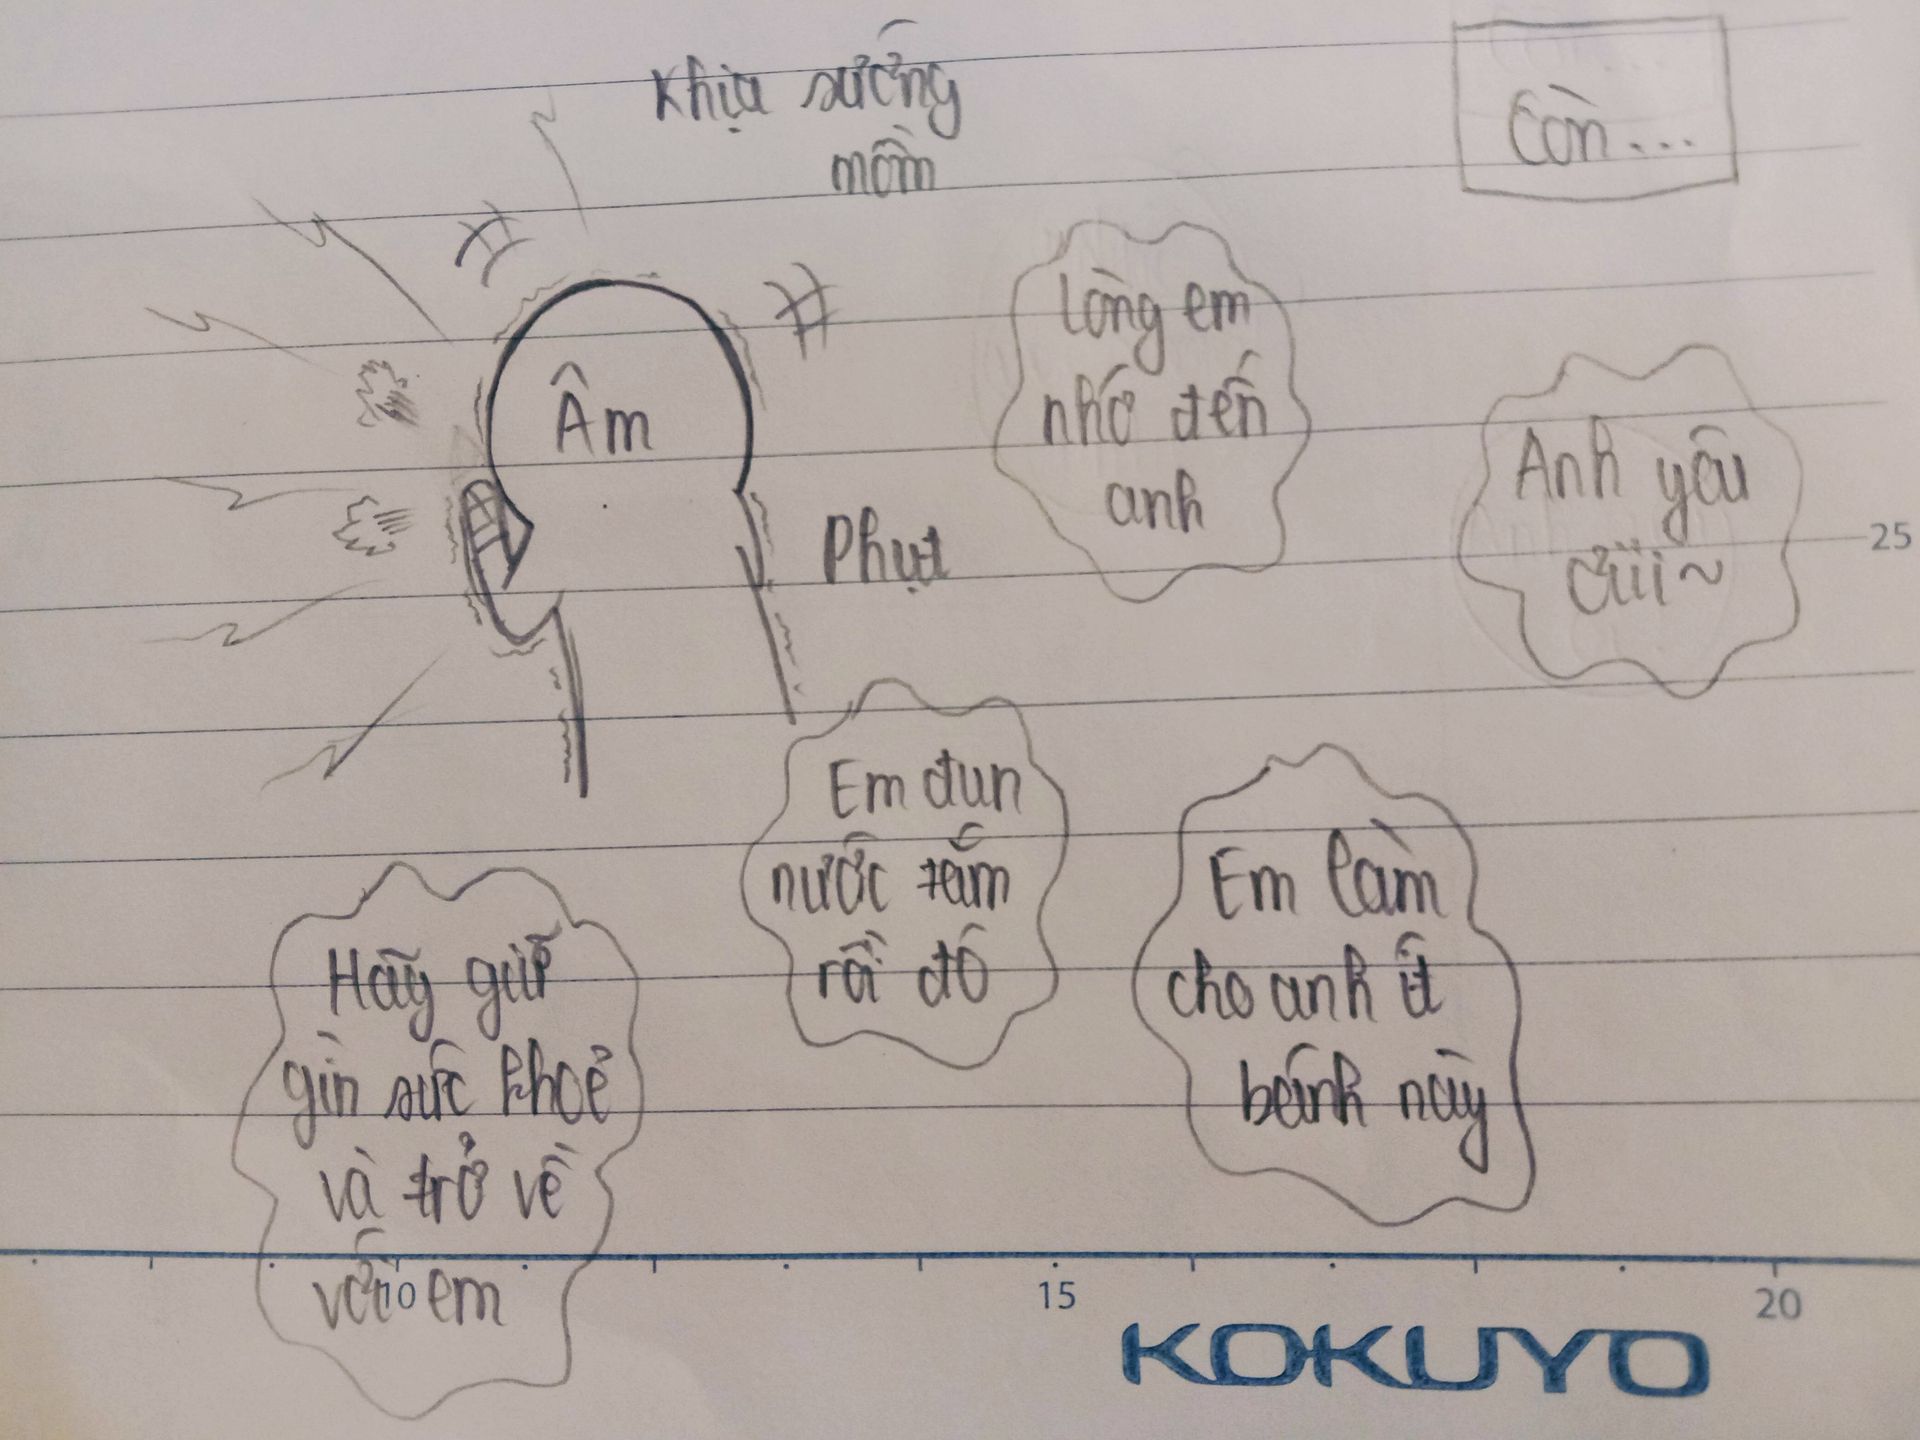 Khịa sướng
mồm
Còn...
Âm
Phụt
lòng em
nhớ đến
anh
Anh yêu
ơiii~
25
Em đun
nước tắm
rồi đó
Em làm
cho anh ít
bánh này
Hãy giữ
gìn sức khoẻ
và trở về
với em
10
15
20
KOKUYO